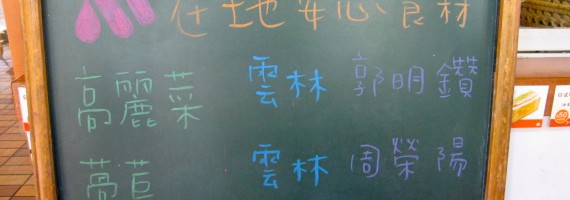 在地安心食材
高麗菜 雲林 郭明鑽
萵苣 雲林 周榮陽